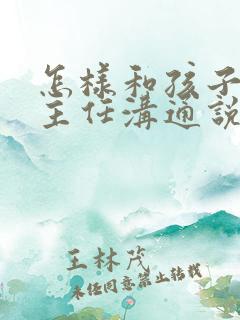 怎样和孩子
主任沟通说
王林茂
未经同意禁止转载